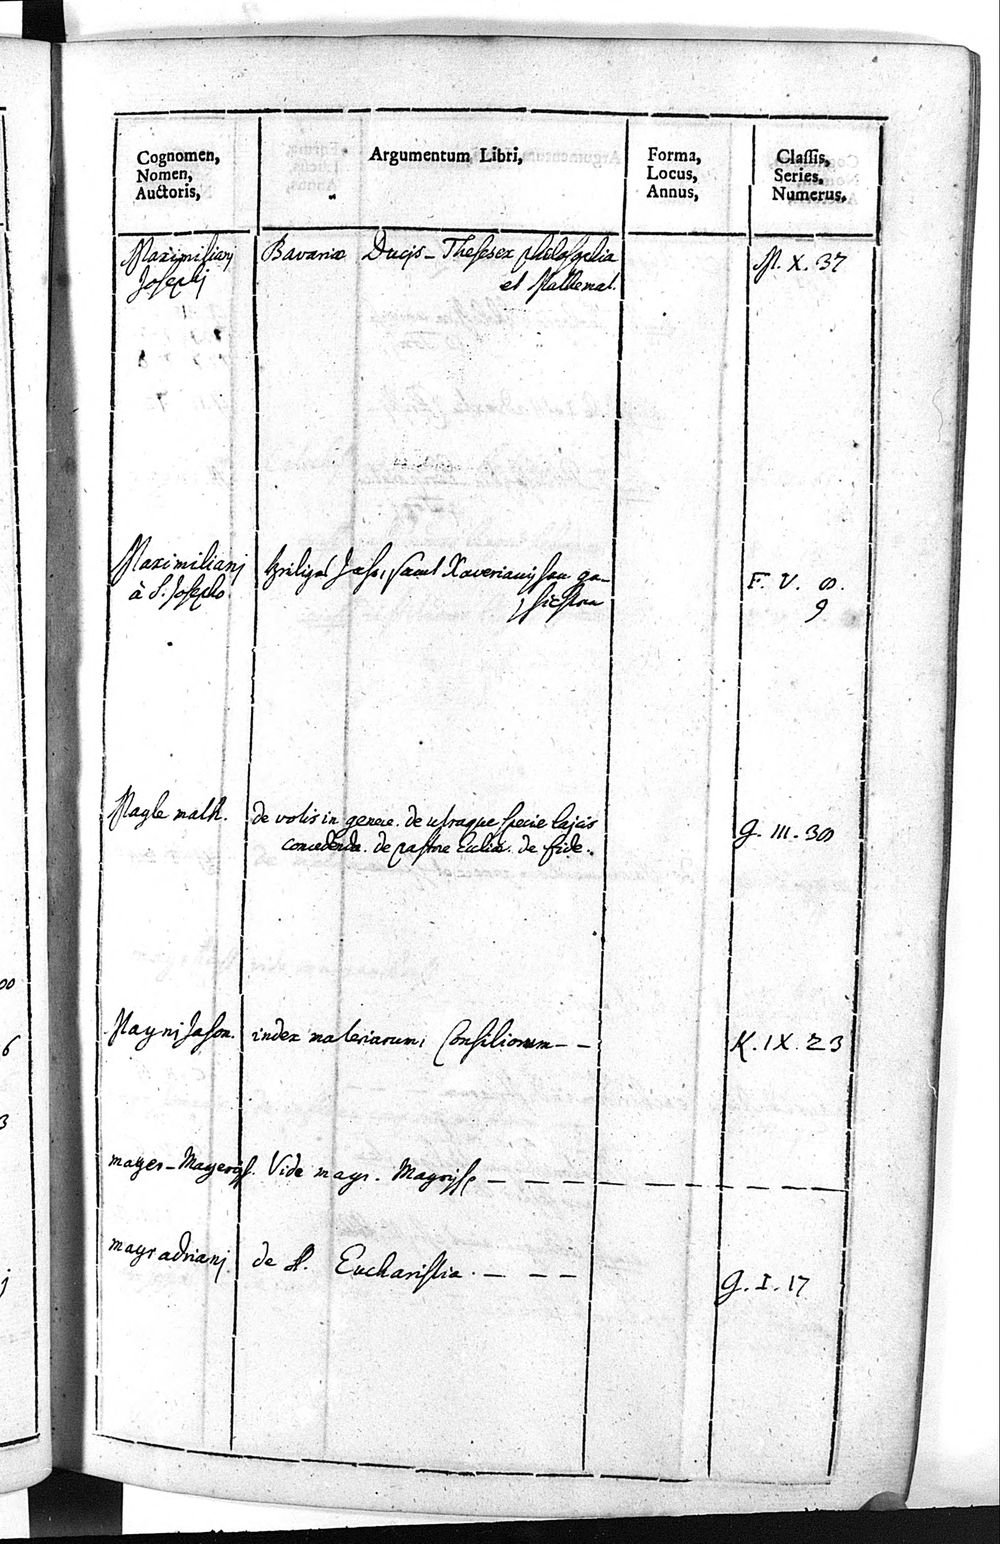 Cognomen,
Nomen,
Auctoris,
Argumentum Libri,
Forma,
Locus,
Annus,
Classis,
Series,
Numerus,
Maximiliani
Josephi
Bavariæ Ducis – Theses ex philosophia
et Mathemat.
M. X. 37
Maximiliani
à S. Josepho.
F. V. 8.
9
Nagle math.
de votis in genere. de utraque specie lajcis
concedenda. de pastore Eccliæ. de fide.
G. III. 30
Mayni Jason.
index materiarum, Consiliorum – –
K. IX. 23
mayer – Mayerus. Vide mayr. Mayrus
mayr adriani
de SS. Eucharistia. – – –
G. I. 17